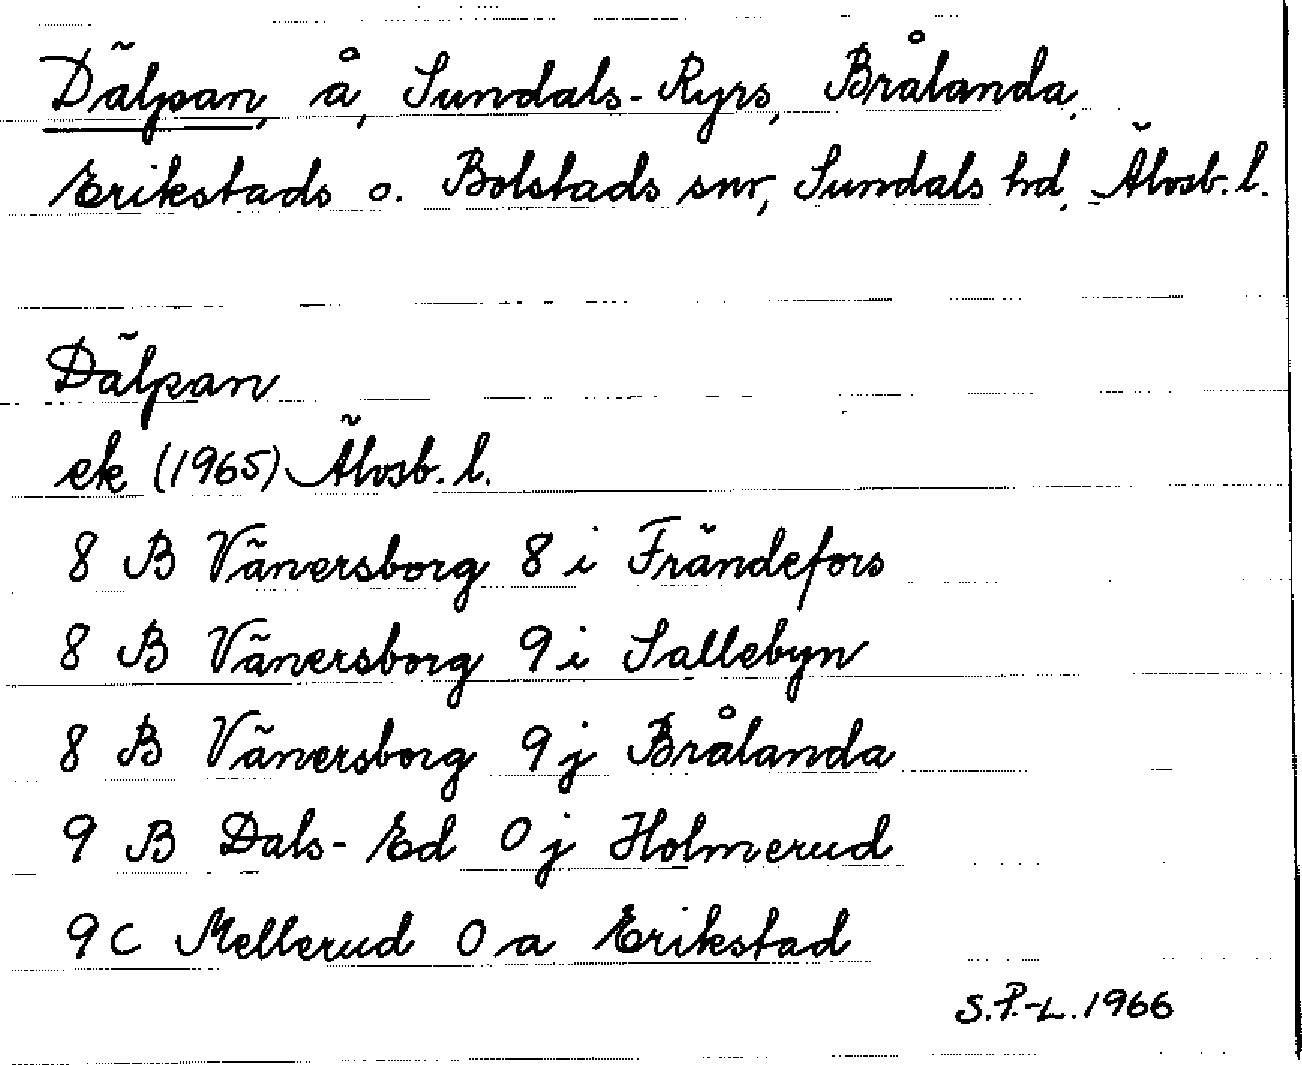 Dälpan, å, Sundals-Ryrs, Brålanda,
Erikstads o. Bolstads snr, Sundals hd, Älvsb. l.
Dälpan
ek (1965) Älvsb. l.
8 B Vänersborg 8 i Frändefors
8 B Vänersborg 9 i Sallebyn
8 B Vänersborg 9 j Brålanda
9 B Dals-Ed 0 j Holmerud
9 C Mellerud 0 a Erikstad
S.P.-L. 1966